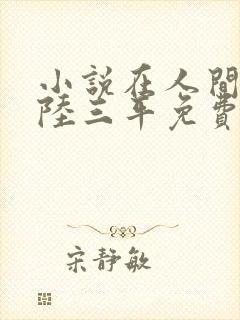 小說在人間
陸三年免費
宋靜敏